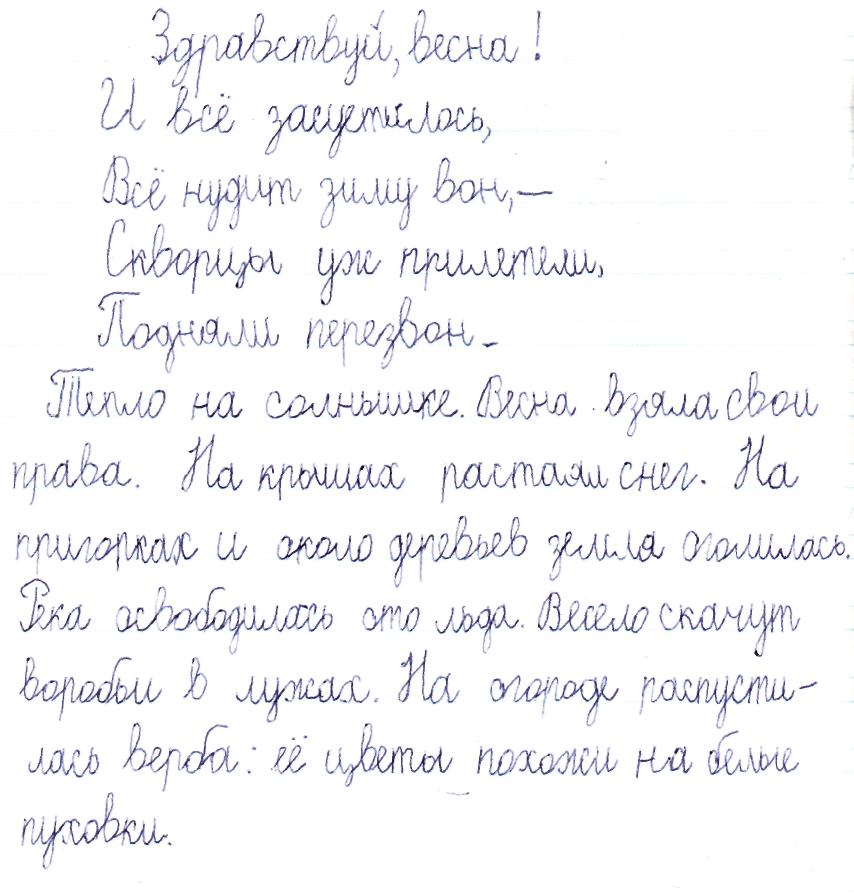 Здравствуй, весна!
И всё засуетилось,
Всё нудит зиму вон,—
Скворцы уж прилетели,
Подняли перезвон.
Тепло на солнышке. Весна взяла свои
права. На крышах растаял снег. На
пригорках и около деревьев земля оголилась.
Река освободилась ото льда. Весело скачут
воробьи в лужах. На огороде распусти-
лась верба: её цветы похожи на белые
пуховки.